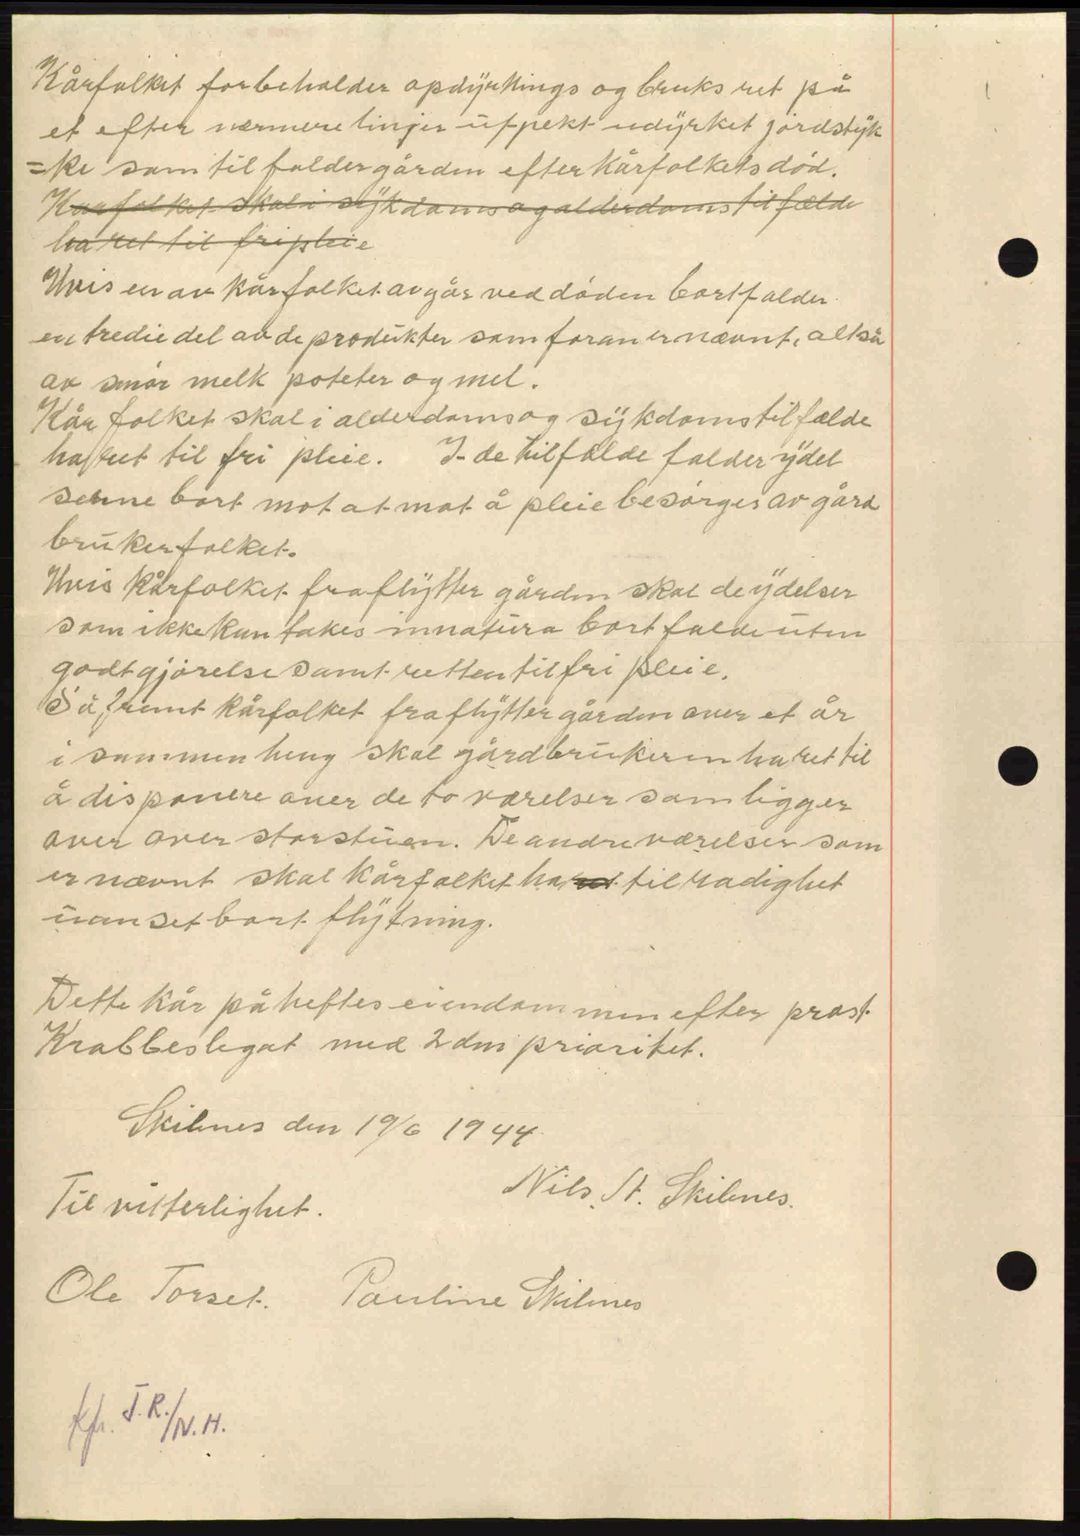 Kårfolket forbeholder opdyrknings og bruks ret på
et efter nærmere linjer utpekt udyrket jordstyk
=ke som tilfalder gården efter Kårfolkets død.
Kårfolket skal i sykdoms og alderdoms tilfælde
ha ret til fri pleie
Hvis en av kårfolket avgår ved døden bortfalder
en tredie del av de produkter som foran er nævnt, altså
av smør melk poteter og mel.
Kårfolket skal i alderdoms og sykdomstilfælde
ha ret til fri pleie. I de tilfælde falder ydel
serne bort mot at mat å pleie besørges av gård
brukerfolket.
Hvis kårfolket fraflytter gården skal de ydelser
som ikke kan takes innatura bortfalde uten
godtgjørelse samt retten til fri pleie.
Så fremt kårfolket fraflytter gården over et år
i sammenheng skal gårdbrukeren ha ret til
å disponere over de to værelser som ligger
over over storstuen. De andre værelser som
er nævnt skal kårfolket ha ret til radighet
uanset bortflytning.
Dette kår påheftes eiendommen efter prost
Krabbeslegat med 2den prioritet.
Skilnes den 19/6 1944
Nils St. Skilnes.
Til vitterlighet.
Ole Torset. Pauline Skilnes
Kfr. J.R./N.H.